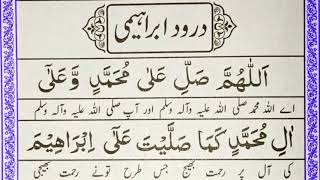 درود ابراہیمی
اَللّٰهُمَّ صَلِّ عَلٰى مُحَمَّدٍ وَّعَلٰٓى
اے اللہ محمد صلی اللہ علیہ وآلہ وسلم اور آپ صلی اللہ علیہ وآلہ وسلم
اٰلِ مُحَمَّدٍ كَمَا صَلَّيْتَ عَلٰٓى اِبْرَاهِيْمَ
کی آل پر رحمت بھیج جس طرح تونے رحمت بھیجی